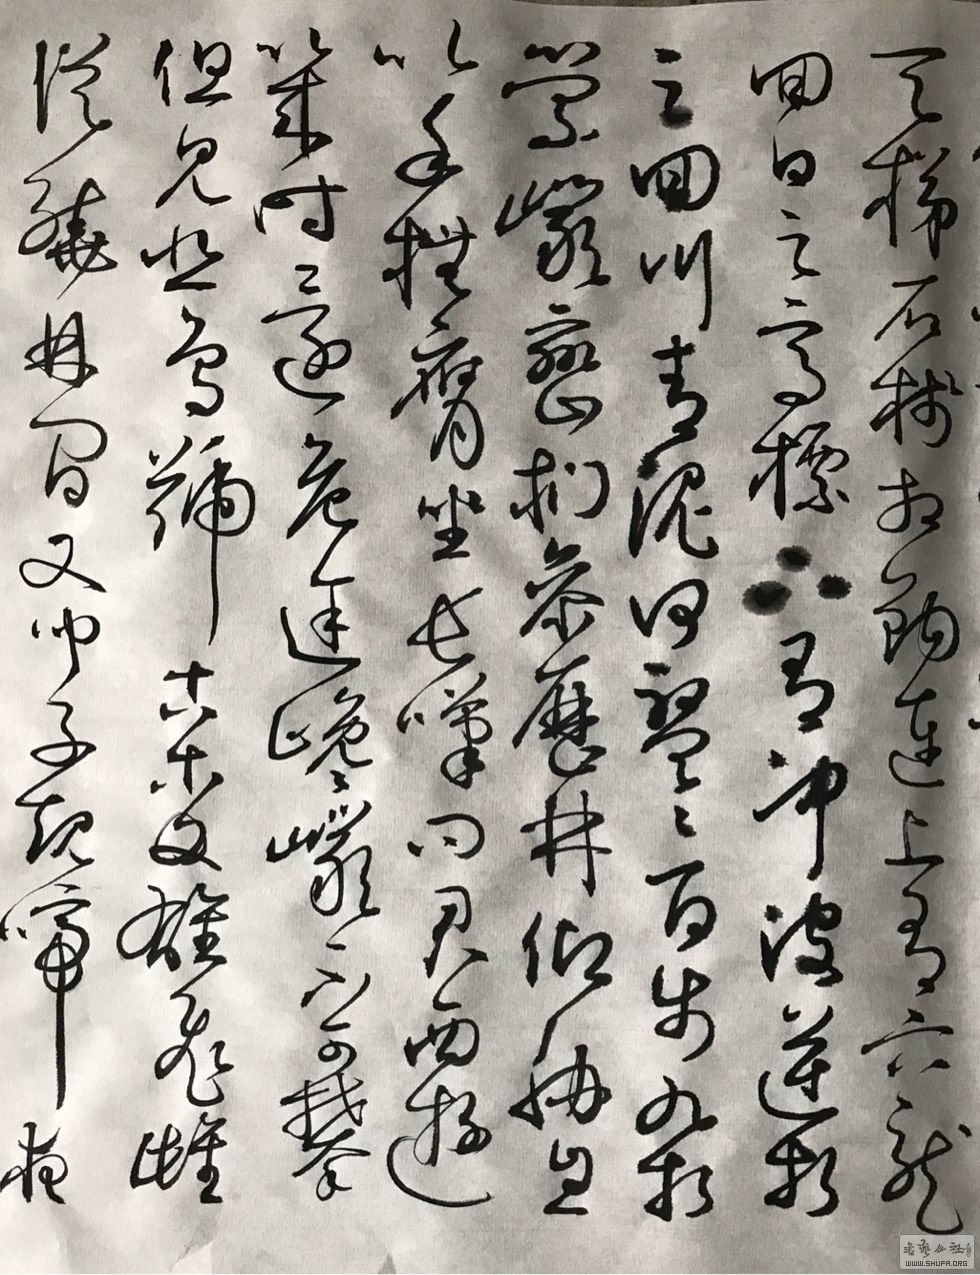 天梯石棧相鉤連上有六龍
回日之高標下有冲波逆折
之回川青泥何盤盤百步九折
縈巖巒捫參歷井仰脅息
以手撫膺坐長嘆問君西遊
幾時還畏途巉巖不可攀
但見悲鳥號古木雄飛雌
從繞林間又聞子規啼夜
書藝公社
WWW.SHUFA.ORG